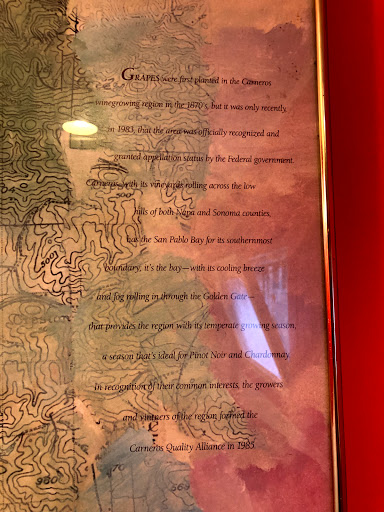 GRAPES were first planted in the Carneros
winegrowing region in the 1870's, but it was only recently,
in 1983, that the area was officially recognized and
granted appellation status by the Federal government.
Carneros, with its vineyards rolling across the low
hills of both Napa and Sonoma counties,
has the San Pablo Bay for its southernmost
boundary, it's the bay—with its cooling breeze
and fog rolling in through the Golden Gate—
that provides the region with its temperate growing season,
a season that's ideal for Pinot Noir and Chardonnay.
In recognition of their common interests, the growers
and vintners of the region formed the
Carneros Quality Alliance in 1985.